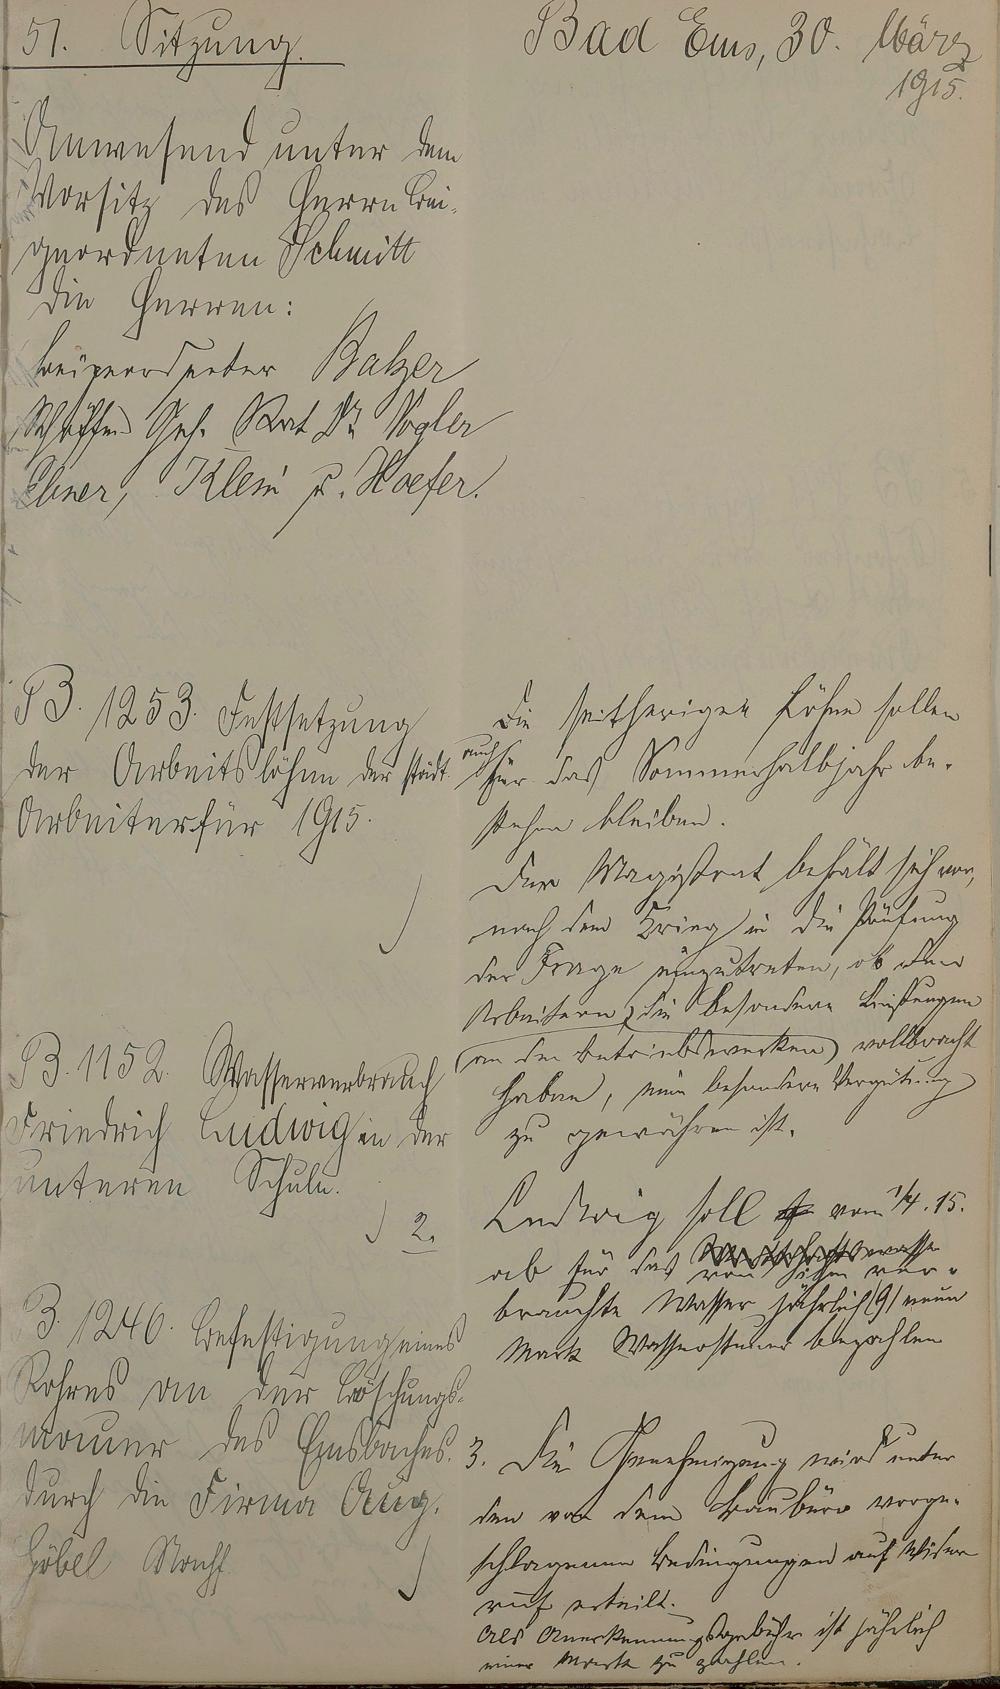 51. Sitzung.
Bad Ems, 30. März
1915.
Anwesend unter dem
Vorsitz des Herrn Bei-
geordneten Schmitt
die Herren:
Beigeordneter Balzer
Schöffen Geh. Rat Dr Vogler
Ebner, Klein u. Hoefer.
B. 1253. Festsetzung
der Arbeitslöhne der städt.
Arbeiter für 1915.
Die seitherigen Löhne sollen
auch
für das Sommerhalbjahr be-
stehen bleiben.
Der Magistrat behält sich vor,
nach dem Krieg in die Prüfung
der Frage einzutreten, ob den
Arbeitern, die besondere Leistungen
(an den Betriebswerken) vollbracht
haben, eine besondere Vergütung
zu gewähren ist.
B. 1152. Wasserverbrauch
Friedrich Ludwig in der
unteren Schule.
2.
Ludwig soll vom 1/4. 15.
ab für das von ihm ver-
brauchte Wasser jährlich (9) neun
Mark Wassersteuer bezahlen
B. 1246. Befestigung eines
Rohres an der Böschungs-
mauer des Emsbaches.
durch die Firma Aug.
Göbel Nachf
3. Die Genehmigung wird unter
den von dem Baubüro vorge-
schlagenen Bedingungen auf Wider
ruf erteilt.
Als Anerkennungsgebühr ist jährlich
eine Mark zu zahlen.